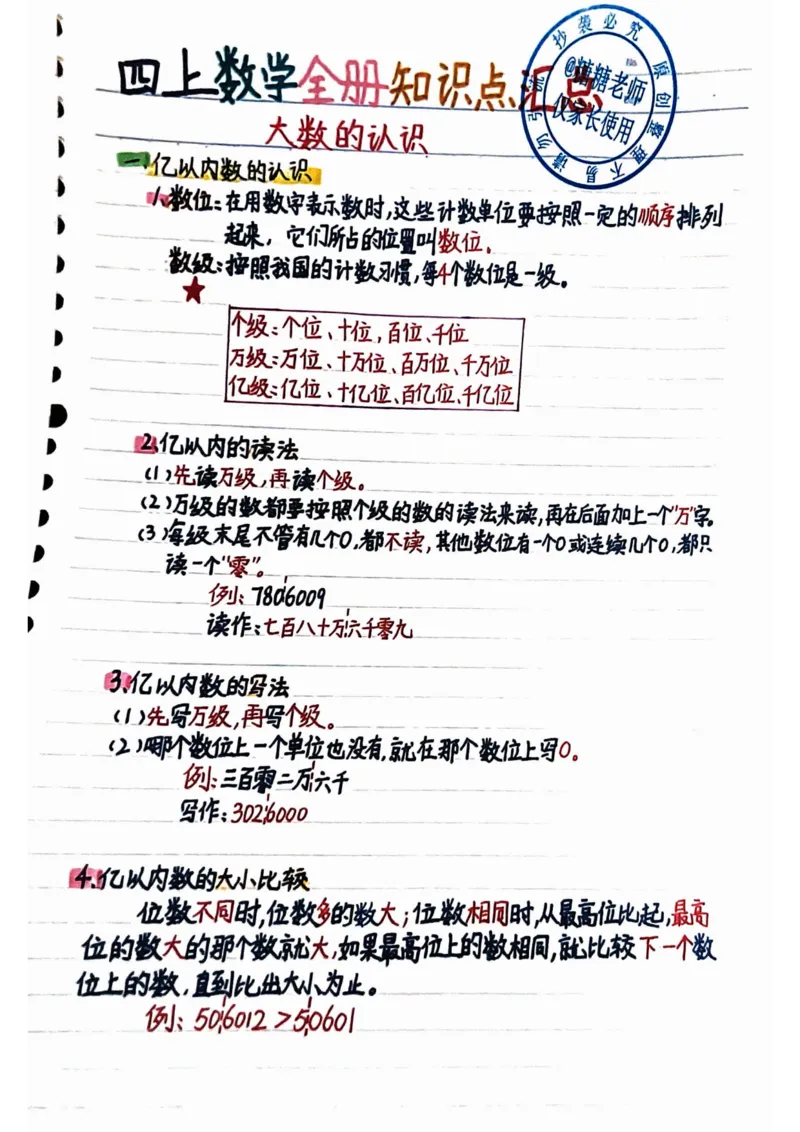 四上数学全册知识点汇总
抄袭必究 原创整理 不易 请勿
@糖糖老师
仅家长使用
大数的认识
一、亿以内数的认识
1、数位:在用数字表示数时,这些计数单位要按照一定的顺序排列
起来,它们所占的位置叫数位。
数级:按照我国的计数习惯,每4个数位是一级。
★
个级:个位、十位,百位、千位
万级:万位、十万位、百万位、千万位
亿级:亿位、十亿位、百亿位、千亿位
2.亿以内的读法
(1)先读万级,再读个级。
(2)万级的数都要按照个级的数的读法来读,再在后面加上一个"万"字。
(3)每级末尾不管有几个0,都不读,其他数位有一个0或连续几个0,都只
读一个"零"。
例:780¦6009
读作:七百八十万¦六千零九
3.亿以内数的写法
(1)先写万级,再写个级。
(2)哪个数位上一个单位也没有,就在那个数位上写0。
例:三百零二万¦六千
写作:302¦6000
4.亿以内数的大小比较
位数不同时,位数多的数大;位数相同时,从最高位比起,最高
位的数大的那个数就大,如果最高位上的数相同,就比较下一个数
位上的数,直到比出大小为止。
例:50¦6012>5¦0601